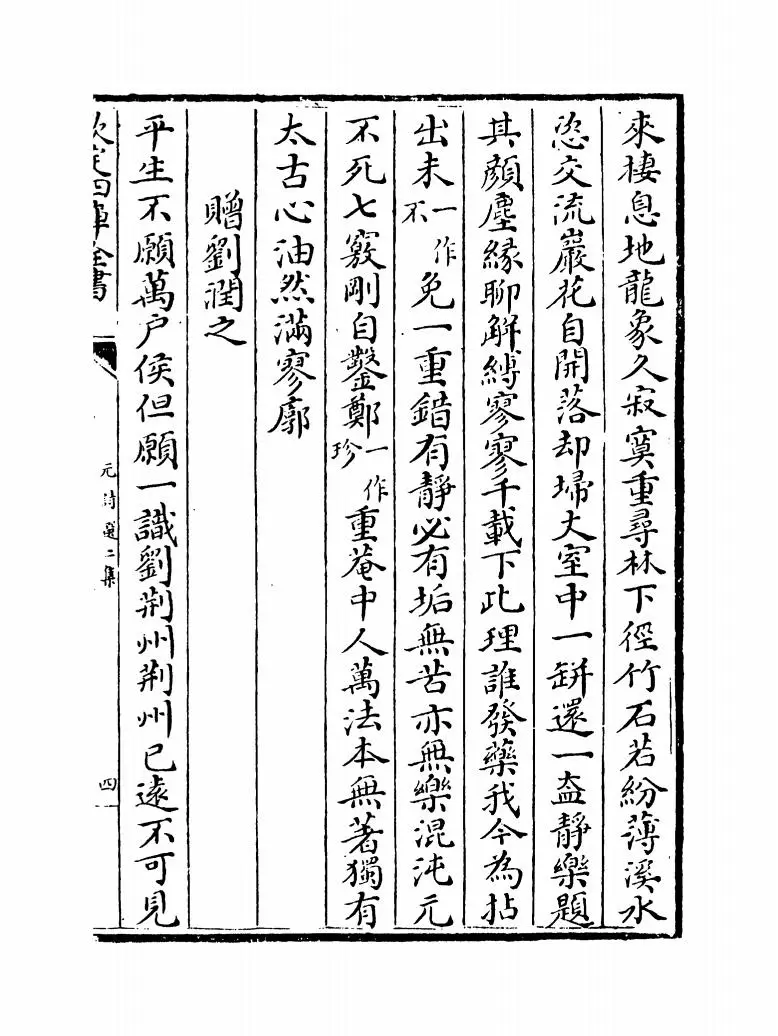 來棲息地龍象久寂寞重尋林下徑竹石若紛薄溪水
恣交流巖花自開落却埽丈室中一缾還一盋靜樂題
其顔塵緣聊解縛寥寥千載下此理誰發藥我今為拈
出未一作不免一重錯有靜必有垢無苦亦無樂混沌元
不死七竅剛自鑿鄭一作珍重菴中人萬法本無著獨有
太古心油然滿寥廓
贈劉潤之
平生不願萬户侯但願一識劉荆州荆州已遠不可見
欽定四庫全書
元詩選二集
四